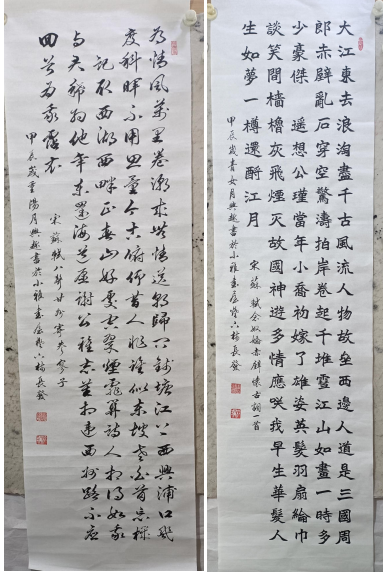 有情風萬里卷潮來無情送潮歸問錢塘江上西興浦口幾
度斜暉不用思量今古俯仰昔人非誰似東坡老白首忘機
記取西湖西畔正春山好處空翠煙霏算詩人相得如我
與君稀約他年東還海道願謝公雅志莫相違西州路不應
回首為我霑衣
宋 蘇軾八聲甘州寄參寥子
甲辰歲重陽月興趣書於小雅書屋
大江東去浪淘盡千古風流人物故壘西邊人道是三國周
郎赤壁亂石穿空驚濤拍岸卷起千堆雪江山如畫一時多
少豪傑 遙想公瑾當年小喬初嫁了雄姿英發羽扇綸巾
談笑間檣櫓灰飛煙滅故國神遊多情應咲我早生華髮人
生如夢一樽還酹江月
宋 蘇軾念奴嬌赤壁懷古詞一首
甲辰歲青女月興趣書於小雅書屋